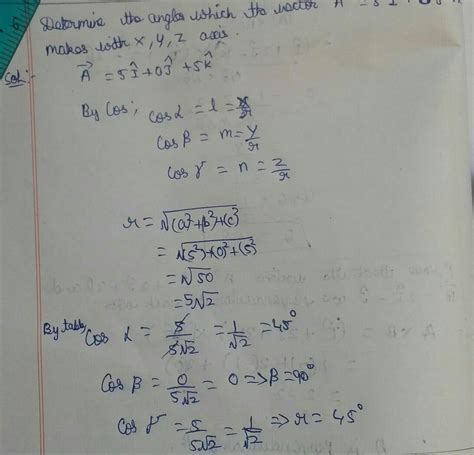 Determine the angles which the vector A = 5 î + 0
makes with x, y, z axis.
Sol:- A⃗ = 5î + 0ĵ + 5k̂
By Cos; cos α = l = x/r
cos β = m = y/r
cos γ = n = z/r
r = √(a)² + (b)² + (c)²
= √(5)² + (0)² + (5)²
= √50
= 5√2
By table cos α = 5/5√2 = 1/√2 = 45°
cos β = 0/5√2 = 0 => β = 90°
cos γ = 5/5√2 = 1/√2 => r = 45°